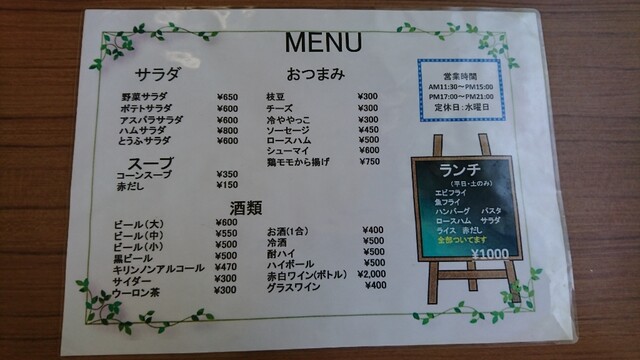 MENU
サラダ
野菜サラダ ¥650
ポテトサラダ ¥600
アスパラサラダ ¥600
ハムサラダ ¥800
とうふサラダ ¥600
スープ
コーンスープ ¥350
赤だし ¥150
おつまみ
枝豆 ¥300
チーズ ¥300
冷ややっこ ¥300
ソーセージ ¥450
ロースハム ¥500
シューマイ ¥600
鶏モモから揚げ ¥750
酒類
ビール(大) ¥600
ビール(中) ¥550
ビール(小) ¥500
黒ビール ¥500
キリンノンアルコール ¥470
サイダー ¥300
ウーロン茶 ¥300
お酒(1合) ¥400
冷酒 ¥500
酎ハイ ¥500
ハイボール ¥500
赤白ワイン(ボトル) ¥2,000
グラスワイン ¥400
営業時間
AM11:30～PM15:00
PM17:00～PM21:00
定休日:水曜日
ランチ
(平日・土のみ)
エビフライ
魚フライ
ハンバーグ パスタ
ロースハム サラダ
ライス 赤だし
全部ついてます
¥1000